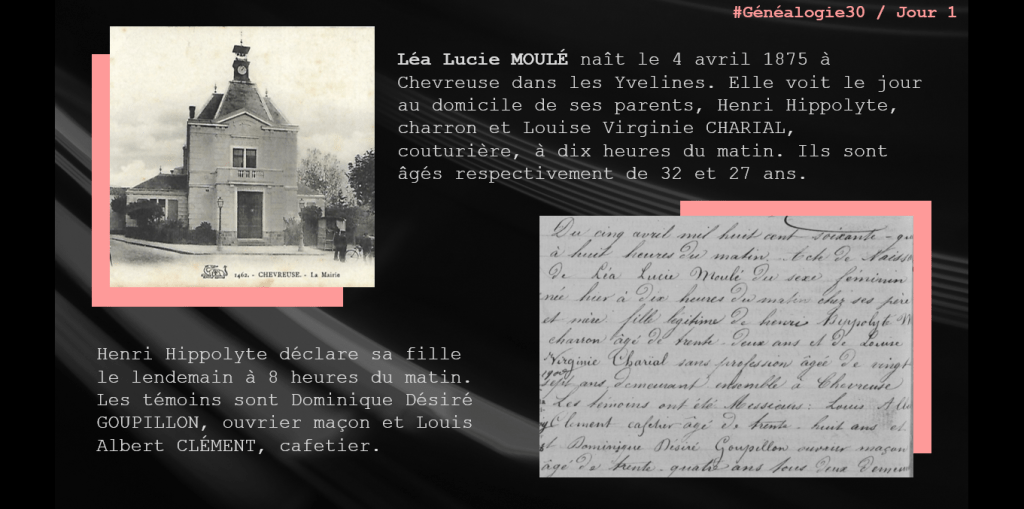 #Généalogie30 / Jour 1
Léa Lucie MOULÉ naît le 4 avril 1875 à
Chevreuse dans les Yvelines. Elle voit le jour
au domicile de ses parents, Henri Hippolyte,
charron et Louise Virginie CHARIAL,
couturière, à dix heures du matin. Ils sont
âgés respectivement de 32 et 27 ans.
1462. - CHEVREUSE. - La Mairie
Du cinq avril mil huit cent soixante - qu
à huit heures du matin. Acte de Naiss
de Léa Lucie Moulé du sexe féminin
née hier à dix heures du matin chez ses père
et mère fille légitime de henri Hippolyte M
charron âgé de trente - deux ans et de Louise
Virginie Charial sans profession âgée de vingt
sept ans demeurant ensemble à Chevreuse
Les témoins ont été Messieurs : Louis Alb
Clément cafetier âgé de trente - huit ans et
et Dominique Désiré Goupillon ouvrier maçon
âgé de trente - quatre ans tous deux demeu
Henri Hippolyte déclare sa fille
le lendemain à 8 heures du matin.
Les témoins sont Dominique Désiré
GOUPILLON, ouvrier maçon et Louis
Albert CLÉMENT, cafetier.